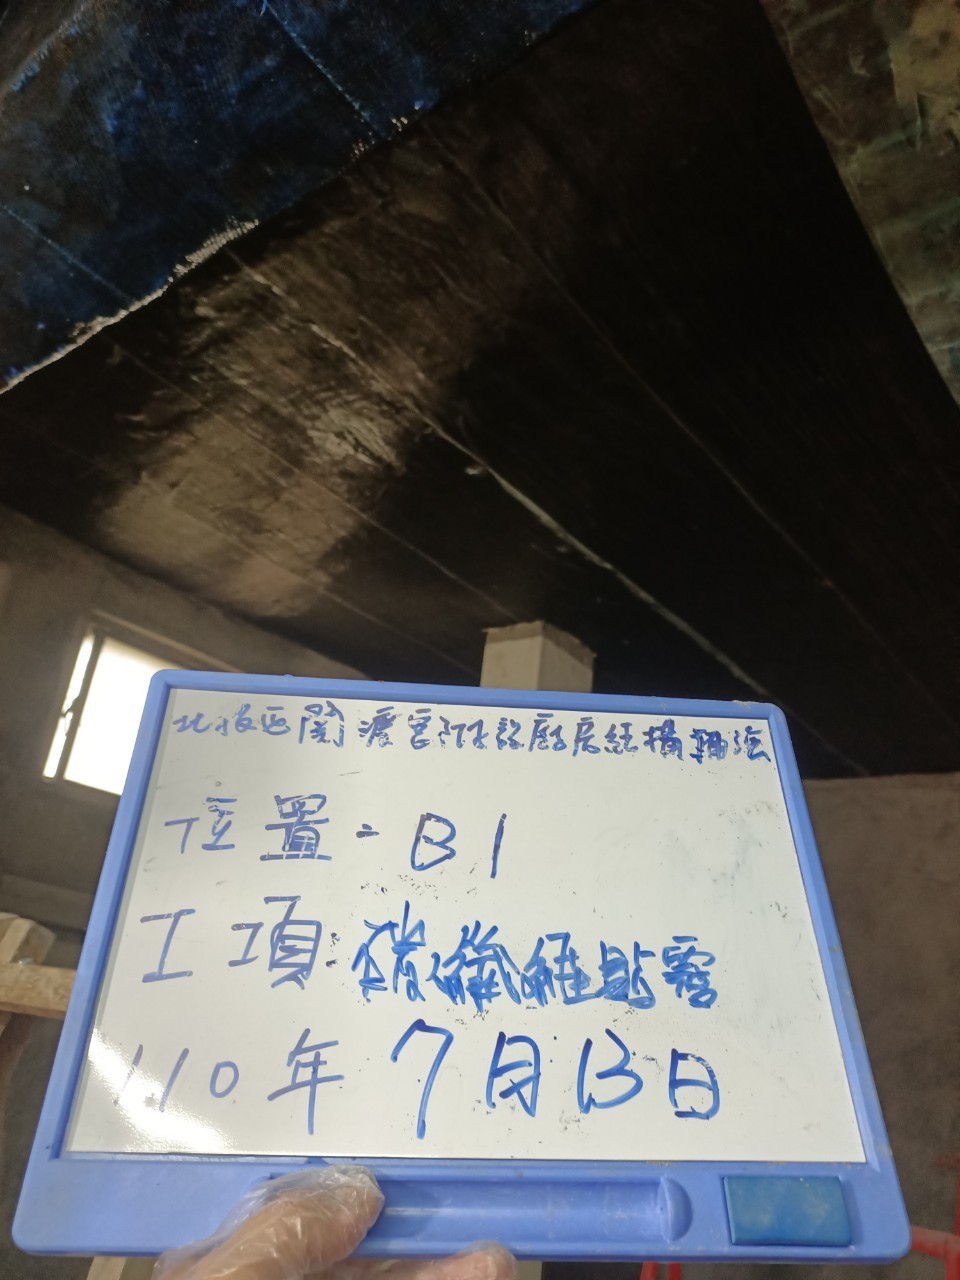 北投區關渡宮附設廚房結構補強
位置：B1
工項：碳纖維貼覆
110年7月13日